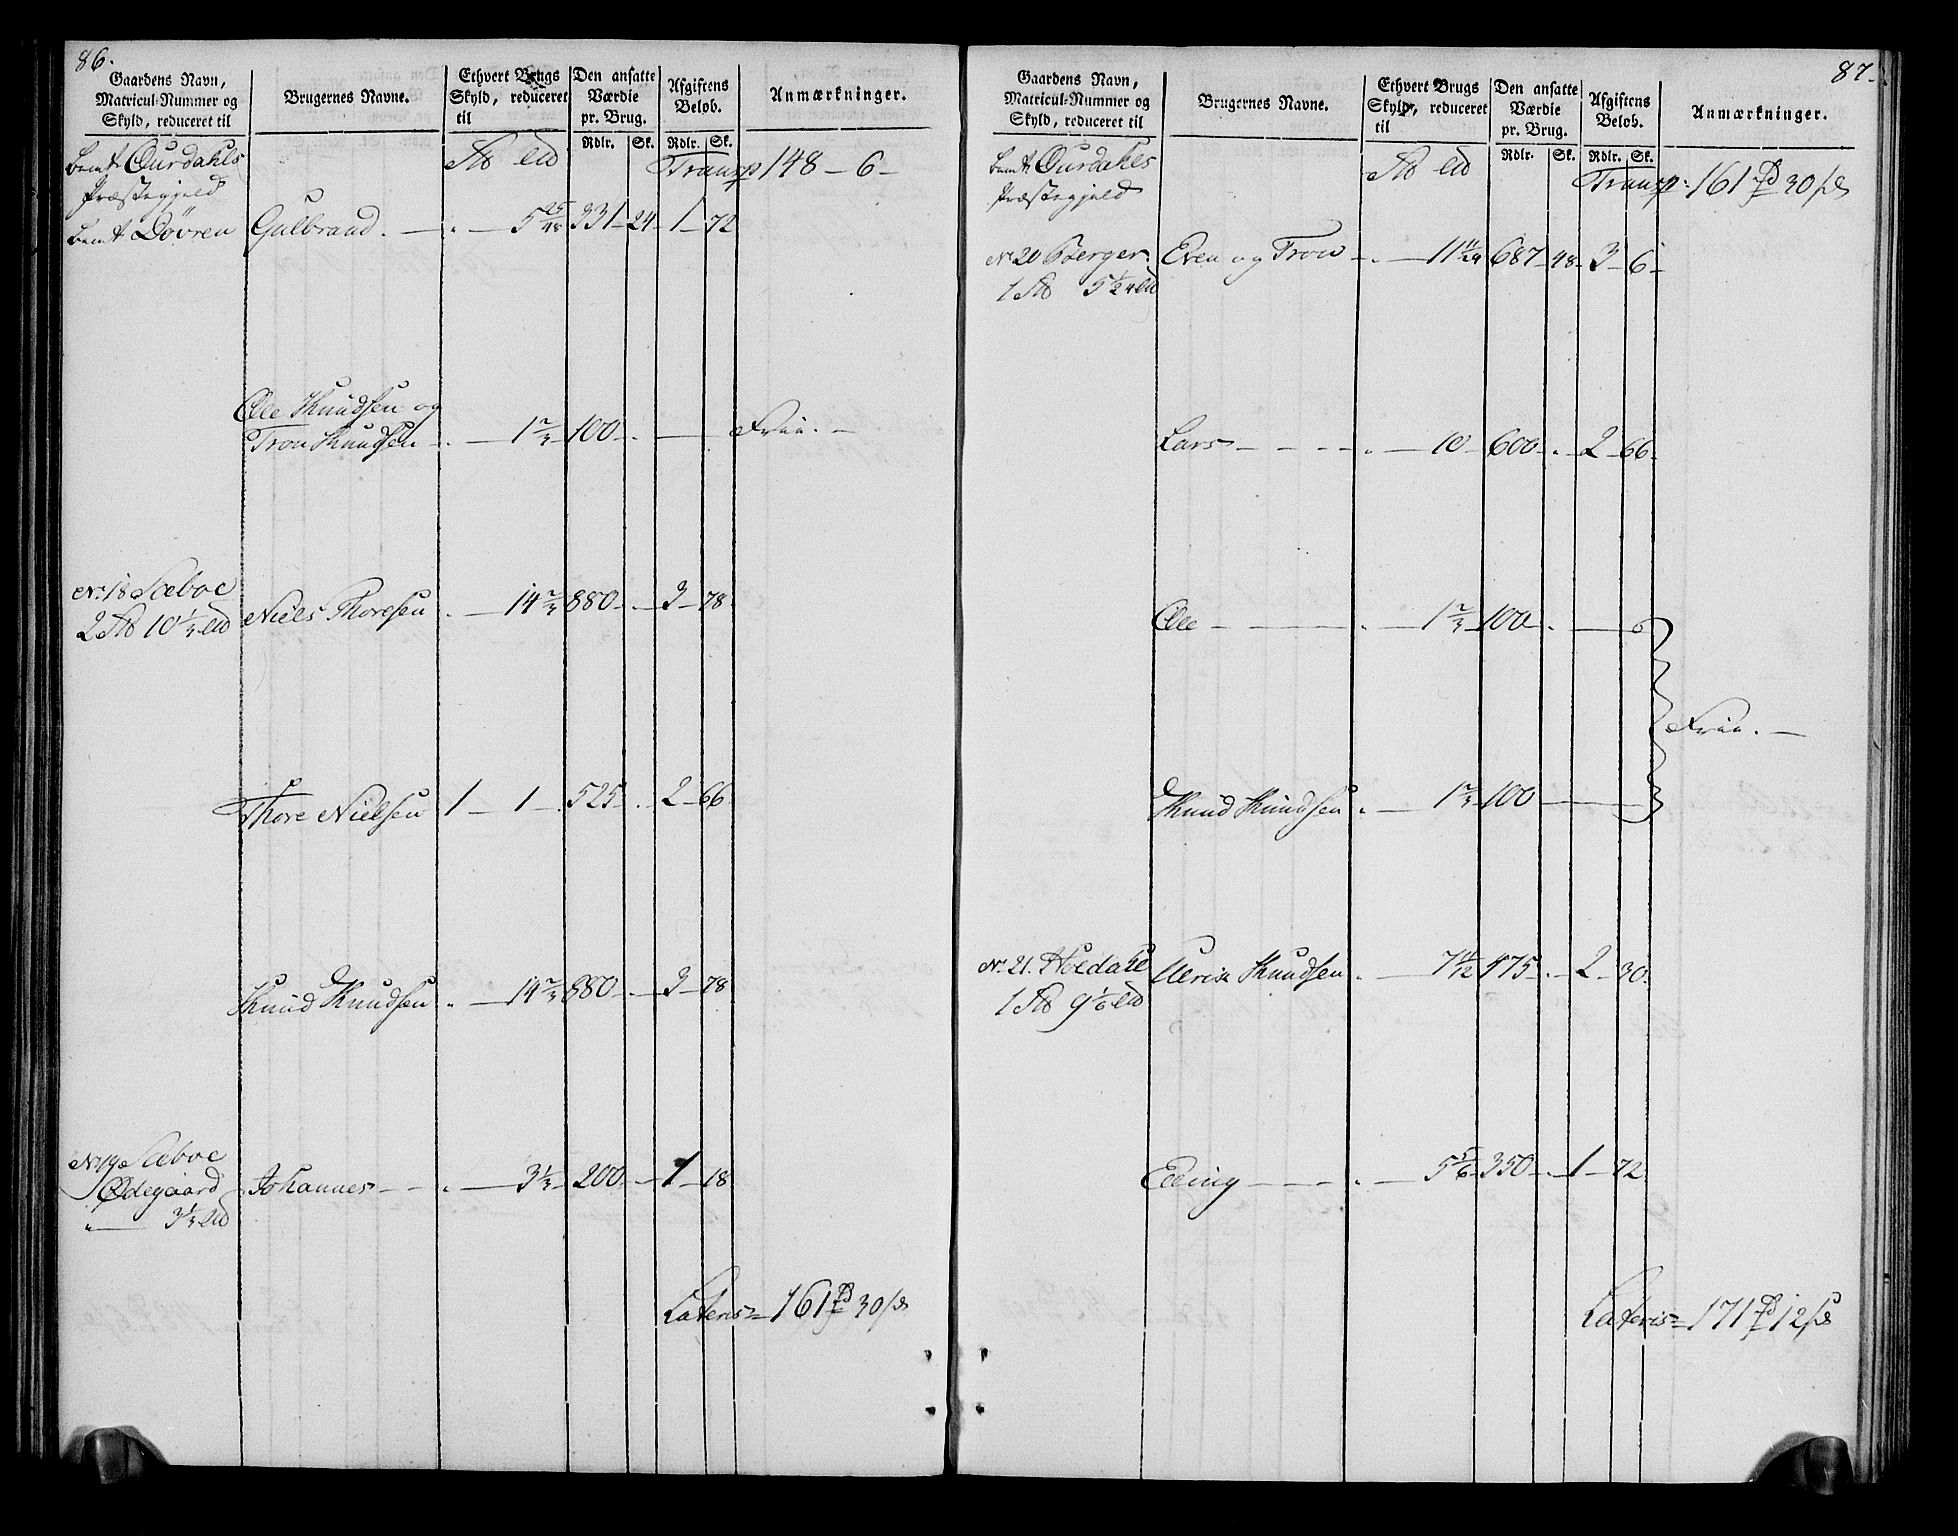 86.
Gaardens Navn, Matricul-Nummer og Skyld, reduceret til
Brugernes Navne.
Ethvert Brugs Skyld, reduceret til
Den ansatte Værdie pr. Brug.
Afgiftens Beløb.
Anmærkninger.
Rdlr. Sk. Rdlr. Sk.
bemt Ourdahls
Præstegjeld
Transp 148 - 6 -
bemt Døvren Gulbrand . - . - 5 25/48 331 - 24 - 1 - 72
Ole Knudsen og
Tron Knudsen - . - 1 2/3 - 100 - . - Frii . -
No. 18 Sæboe
2 10 1/3
Niels Thoresen . - 14 2/3 880 - . - 3 - 78.
Thore Nielsen 1 - 1 - . 525 - . 2 - 66
Knud Knudsen . - 14 2/3 880 - . - 3 - 78
No. 19 Sæboe
Ødegaard
" - 3 1/3
Johannes - - . - 3 1/3 - 200 - . - 1 - 18
Lateris = 161 Rd 30 sk
87.
Gaardens Navn, Matricul-Nummer og Skyld, reduceret til
Brugernes Navne.
Ethvert Brugs Skyld, reduceret til
Den ansatte Værdie pr. Brug.
Afgiftens Beløb.
Anmærkninger.
Rdlr. Sk. Rdlr. Sk.
bemt Ourdahls
Præstegjeld
Transp: 161 Rd 30 sk
No. 20 Berger
1 5 1/24
Even og Tron - . - 11 11/24 687 - 48 - 3 - 6 -
Lars - - - - . - 10 - 600 - . - 2 - 66 -
Ole - - - . - 1 2/3 - 100 - . -
Frii . -
Knud Knudsen . - 1 2/3 100 -
No. 21. Holdahl
1 9 1/6
Ulrik Knudsen . - 7 11/12 475 - . - 2 - 30.
Elling - - - . - 5 5/6 350 - . - 1 - 72
Lateris = 171 Rd 12 sk